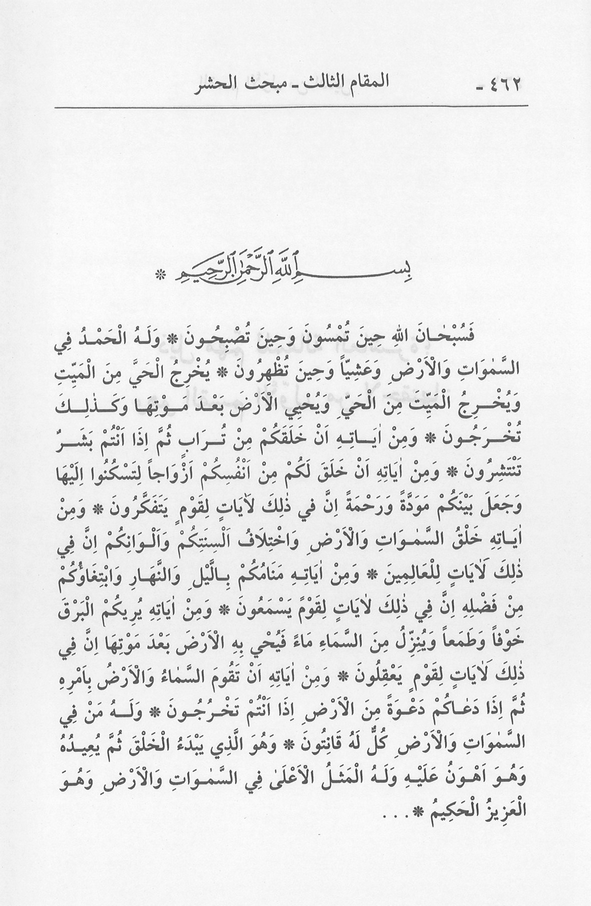 ٤٦٢ - المقام الثالث - مبحث الحشر
بِسْمِ اللّٰهِ الرَّحْمٰنِ الرَّحِيمِ *
فَسُبْحَانَ اللّٰهِ حِينَ تُمْسُونَ وَحِينَ تُصْبِحُونَ * وَلَهُ الْحَمْدُ فِي
السَّمٰوَاتِ وَالْاَرْضِ وَعَشِيّاً وَحِينَ تُظْهِرُونَ * يُخْرِجُ الْحَيَّ مِنَ الْمَيِّتِ
وَيُخْرِجُ الْمَيِّتَ مِنَ الْحَيِّ وَيُحْيِي الْاَرْضَ بَعْدَ مَوْتِهَا وَكَذٰلِكَ
تُخْرَجُونَ * وَمِنْ اٰيَاتِهِ اَنْ خَلَقَكُمْ مِنْ تُرَابٍ ثُمَّ اِذَا اَنْتُمْ بَشَرٌ
تَنْتَشِرُونَ * وَمِنْ اٰيَاتِهِ اَنْ خَلَقَ لَكُمْ مِنْ اَنْفُسِكُمْ اَزْوَاجاً لِتَسْكُنُوا اِلَيْهَا
وَجَعَلَ بَيْنَكُمْ مَوَدَّةً وَرَحْمَةً اِنَّ في ذٰلِكَ لَاٰيَاتٍ لِقَوْمٍ يَتَفَكَّرُونَ * وَمِنْ
اٰيَاتِهِ خَلْقُ السَّمٰوَاتِ وَالْاَرْضِ وَاخْتِلَافُ اَلْسِنَتِكُمْ وَاَلْوَانِكُمْ اِنَّ فِي
ذٰلِكَ لَاٰيَاتٍ لِلْعَالِمِينَ * وَمِنْ اٰيَاتِهِ مَنَامُكُمْ بِالَّيْلِ وَالنَّهَارِ وَابْتِغَاؤُكُمْ
مِنْ فَضْلِهِ اِنَّ فِي ذٰلِكَ لَاٰيَاتٍ لِقَوْمٍ يَسْمَعُونَ * وَمِنْ اٰيَاتِهِ يُرِيكُمُ الْبَرْقَ
خَوْفاً وَطَمَعاً وَيُنَزِّلُ مِنَ السَّمَاءِ مَاءً فَيُحْيِ بِهِ الْاَرْضَ بَعْدَ مَوْتِهَا اِنَّ فِي
ذٰلِكَ لَاٰيَاتٍ لِقَوْمٍ يَعْقِلُونَ * وَمِنْ اٰيَاتِهِ اَنْ تَقُومَ السَّمَاءُ وَالْاَرْضُ بِاَمْرِهِ
ثُمَّ اِذَا دَعَاكُمْ دَعْوَةً مِنَ الْاَرْضِ اِذَا اَنْتُمْ تَخْرُجُونَ * وَلَهُ مَنْ فِي
السَّمٰوَاتِ وَالْاَرْضِ كُلٌّ لَهُ قَانِتُونَ * وَهُوَ الَّذِي يَبْدَءُ الْخَلْقَ ثُمَّ يُعِيدُهُ
وَهُوَ اَهْوَنُ عَلَيْهِ وَلَهُ الْمَثَلُ الْاَعْلَى فِي السَّمٰوَاتِ وَالْاَرْضِ وَهُوَ
الْعَزِيزُ الْحَكِيمُ * ...